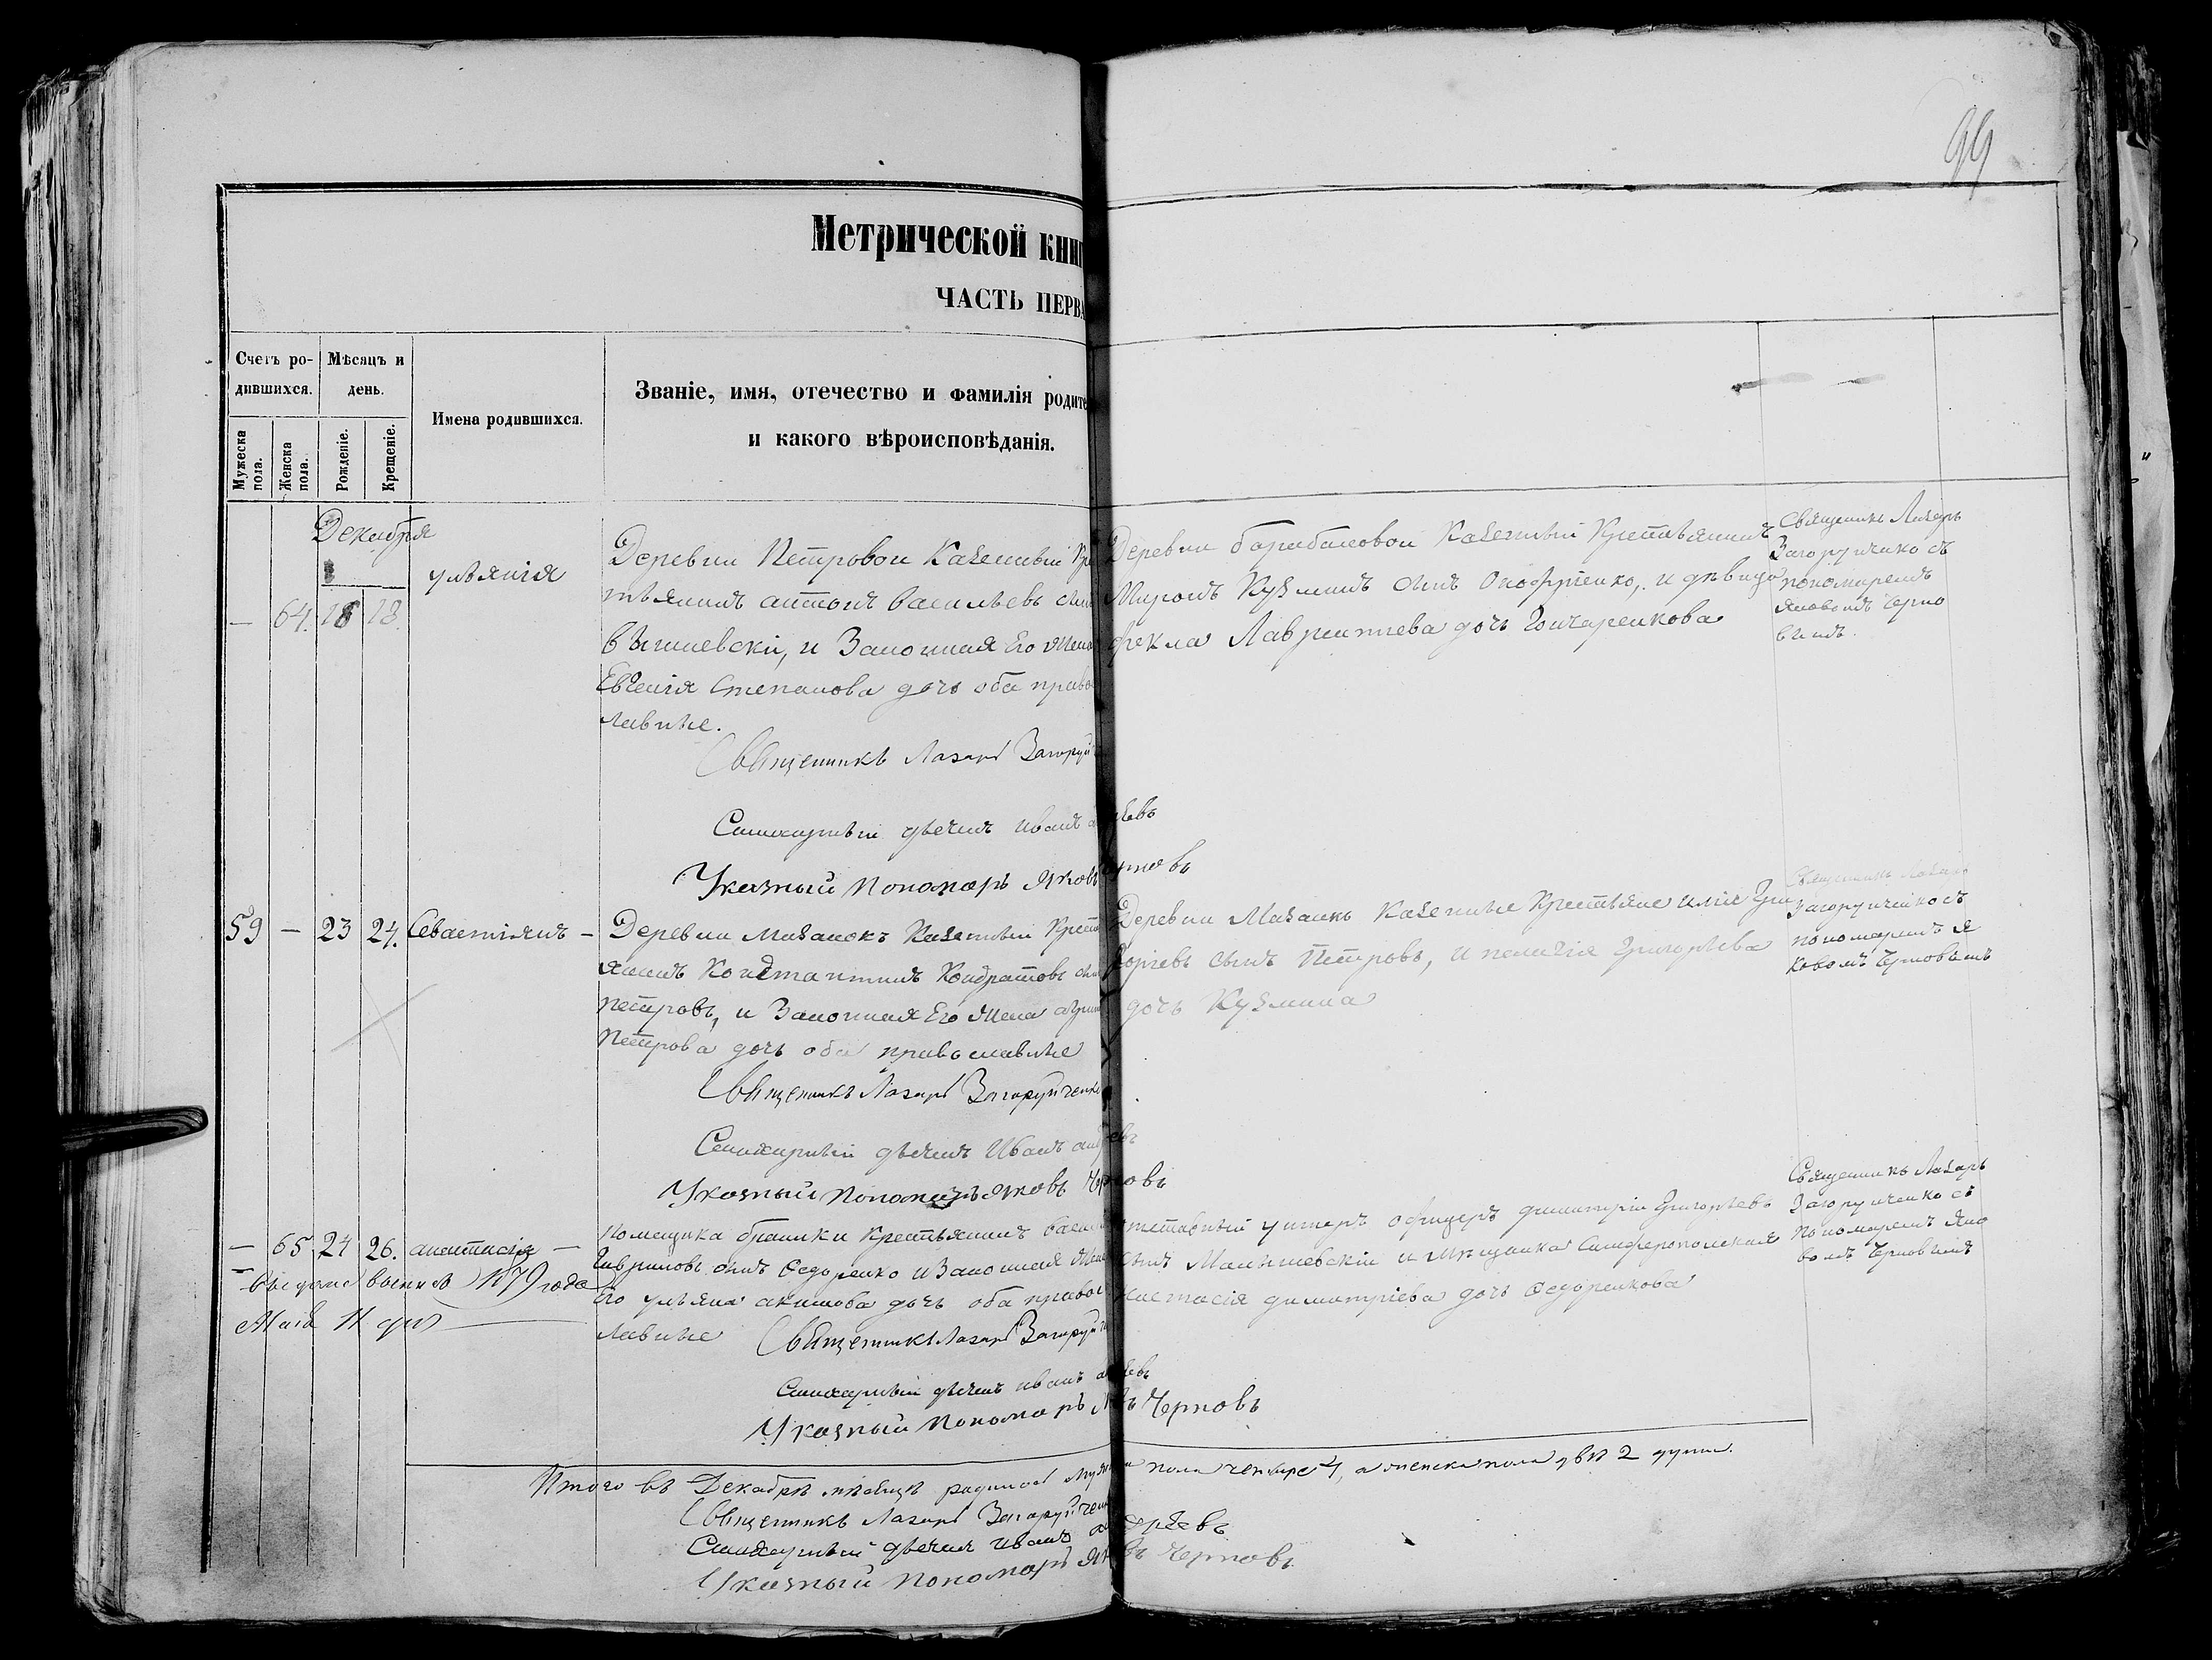 99
Метрической книг
ЧАСТЬ ПЕРВА
Счетъ ро-
дившихся.
Мѣсяцъ и
день.
Имена родившихся.
Званіе, имя, отечество и фамилія родите
и какого вѣроисповѣданія.
Мужеска пола.
Женска пола.
Рожденіе.
Крещеніе.
Декабря
— 64. 18 18.
улѣянія
Деревни Петровой Казенный Кре
тѣянинъ антонъ васильевъ сынъ
вышневскій, и Законная Его Жена
Евгенія Степанова дочь оба правос
лавные.
Священникъ Лазарь Загоруй
дѣячекъ Иванъ
Указный Пономарь Яковъ Черновъ
Деревни барабановой Казенный Крестьянинъ
Миронъ Кузминъ сынъ Оноффріенко, и дѣвица
фекла Лаврентіева дочь Гончаренкова
Священникъ Лазарь
Загоруйченко съ
пономаремъ
Яковомъ Черно
вымъ.
59 — 23 24. Севастіянъ —
Деревни Мазанокъ Казенный Крест
янинъ Константинъ Кондратовъ сынъ
Петровъ, и Законная Его Жена
Петрова дочь оба православные
Священникъ Лазарь Загоруйченко
дѣячекъ Иванъ
Указный Пономарь Яковъ Черновъ
Деревни Мазанкъ Казенные Крестьяне Гри
горіевъ сынъ Петровъ, и пелагія Григорьева
дочь Кузмина
Священникъ Лазарь
Загоруйченко съ
пономаремъ Я
ковомъ Черновымъ
— 65 24 26. анастасія —
1879 года
Мая 11 дня
Помещика Крестьянинъ васил
Гавриловъ сынъ Федоренко и Законная Жена
Его улѣяна акимова дочь оба правос
лавные
Священникъ Лазарь Загоруй
дѣячекъ иванъ
Указный Пономарь Яковъ Черновъ
отставный унтеръ офицеръ димитрій Григорьевъ
сынъ Малышевскій и Мѣщанка Симферопольская
анастасія димитріева дочь Федоренкова
Священникъ Лазарь
Загоруйченко съ
Пономаремъ Яко
вомъ Черновымъ
Итого въ Декабрѣ мѣсяцѣ родилось Мужеска пола четыре 4, а женска пола двѣ 2 души.
Священникъ Лазарь Загоруйчен
дѣячекъ иванъ
Указный Пономарь Яковъ Черновъ